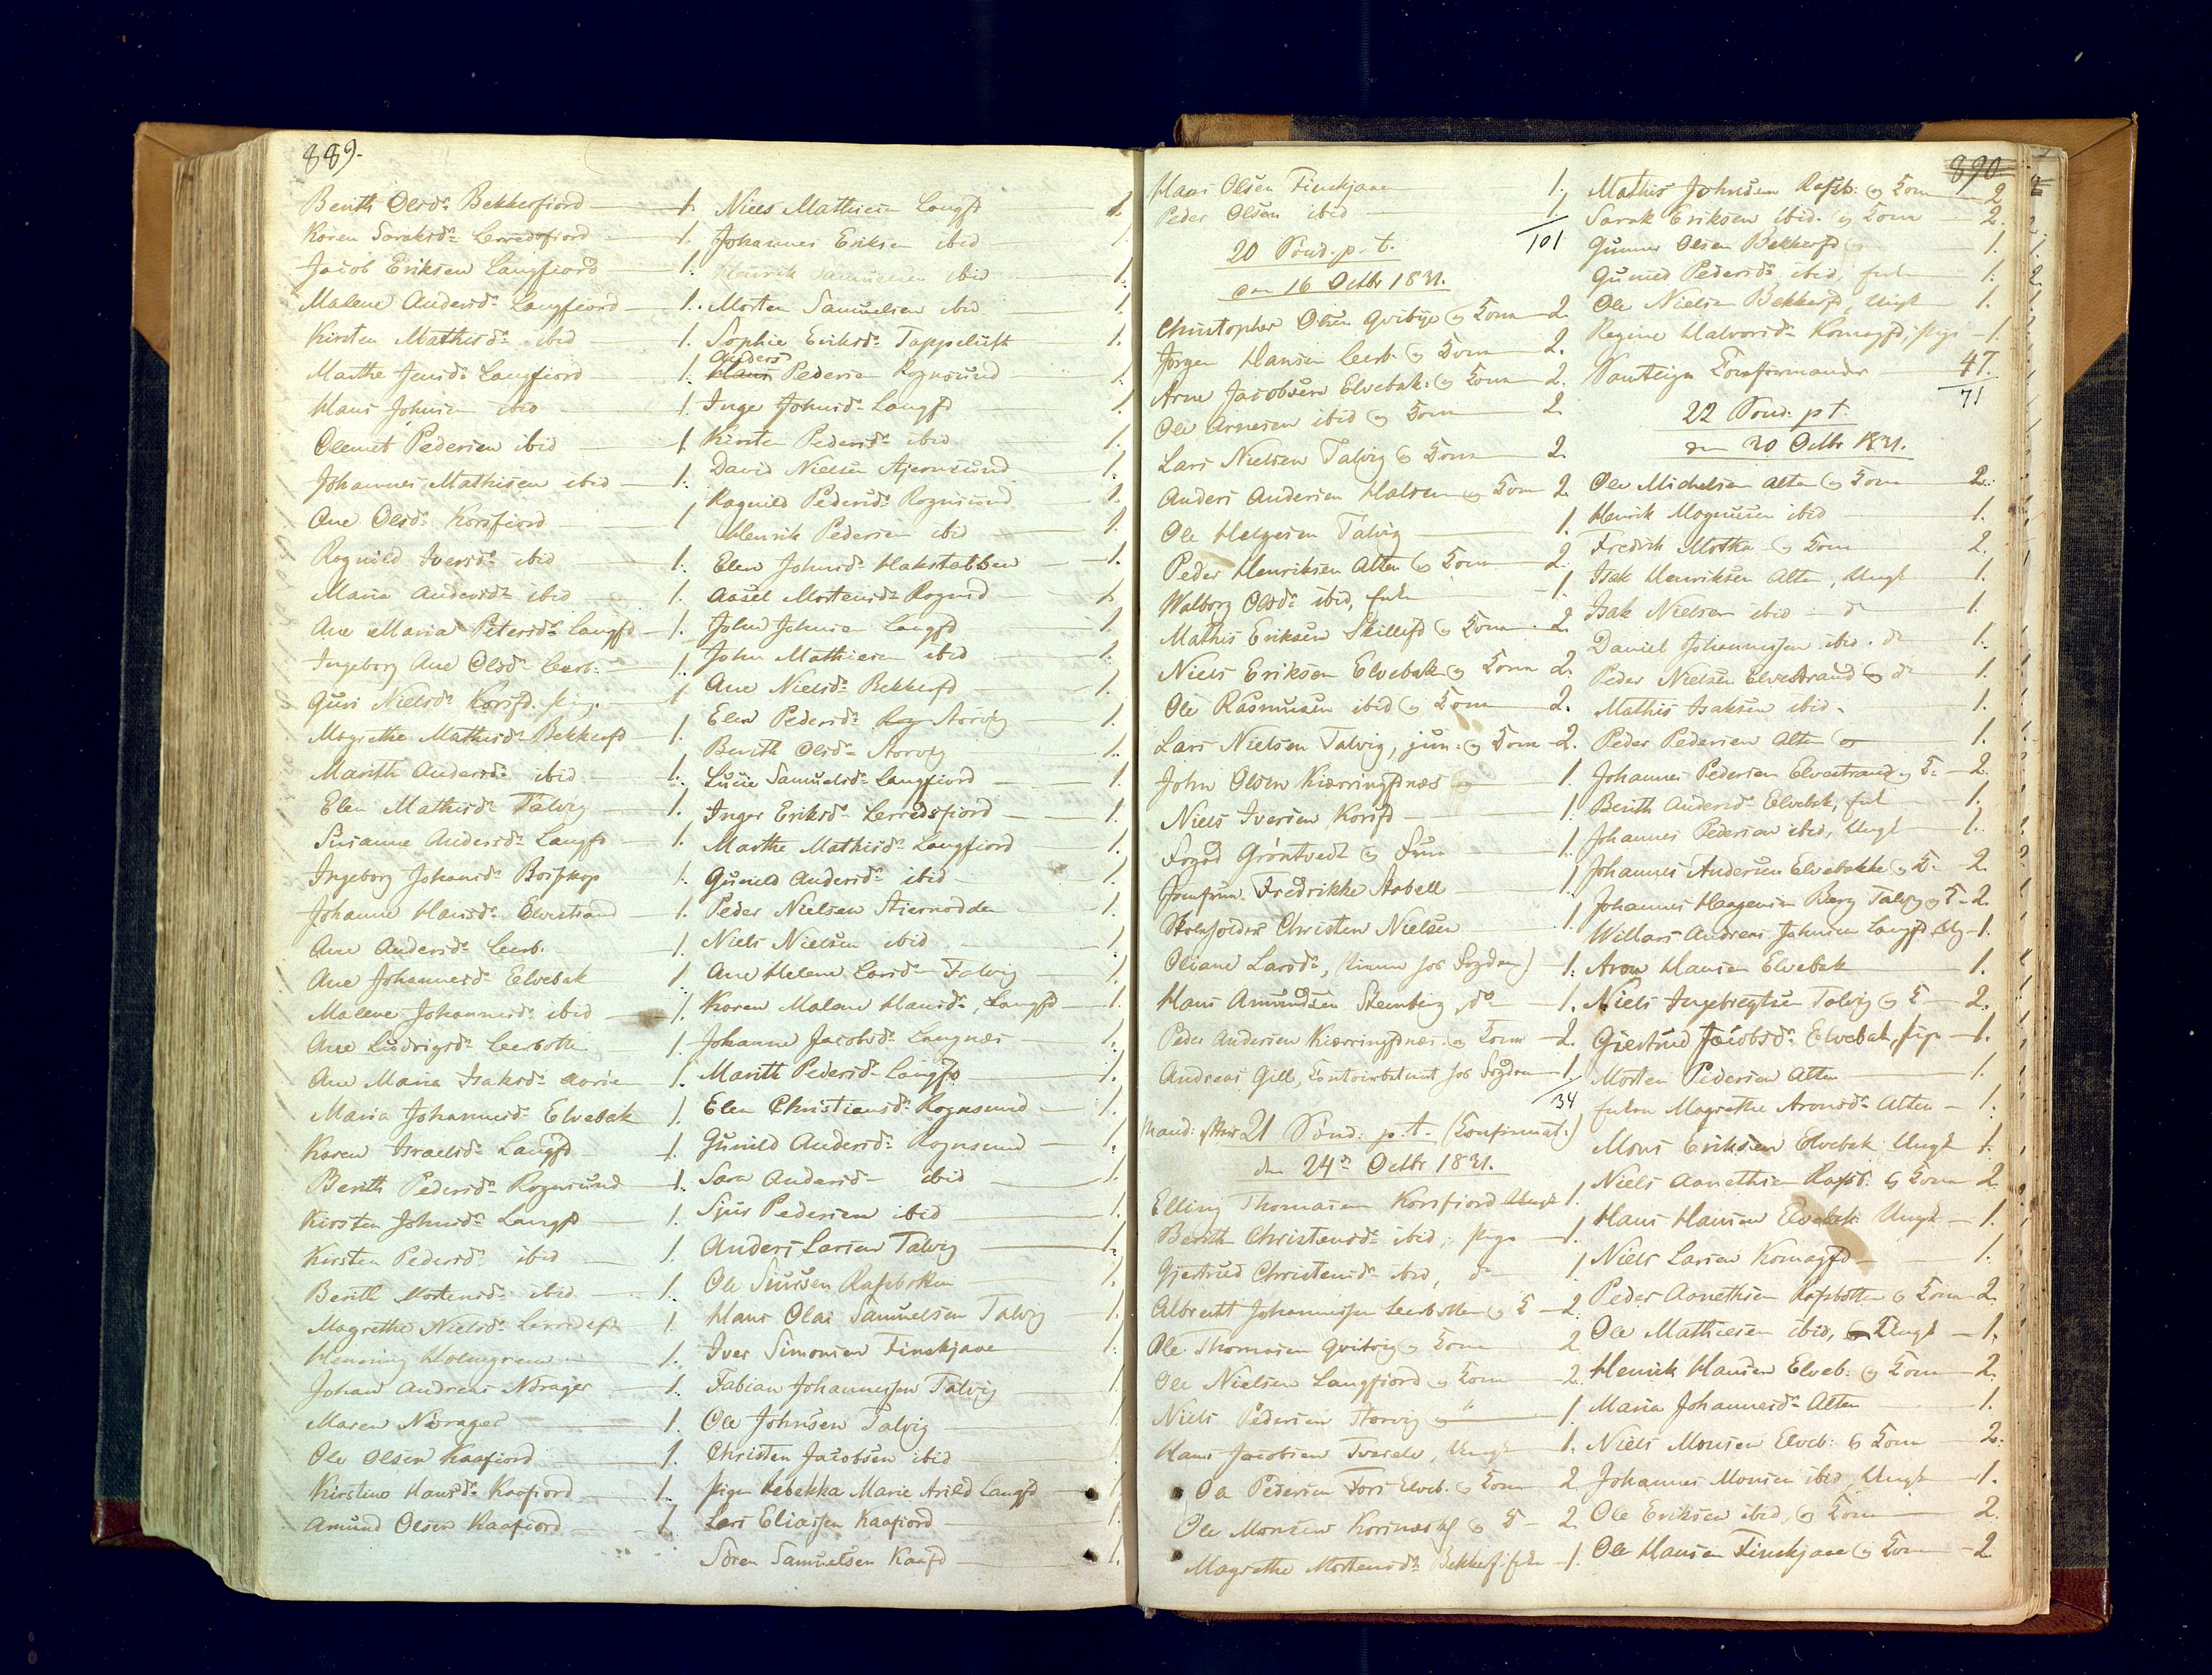 889.
Berith Olsdr Bekkerfiord — 1.
Karen Saraksdr Lerredsfiord — 1.
Jacob Eriksen Langfiord — 1.
Malene Andersdr Langfiord — 1.
Kirsten Mathisdr ibid — 1.
Marthe Jensdr Langfiord — 1.
Hans Johnsen ibid — 1.
Clemet Pedersen ibid — 1
Johannes Mathisen ibid — 1.
Ane Olsdr Korsfiord — 1
Ragnild Iversdr ibid — 1.
Maria Andersdr ibid — 1.
Ane Maria Petersdr Langfd — 1.
Ingeborg Ane Olsdr Leerb. — 1.
Guri Nielsdr Korsfd. pig. — 1
Magrethe Mathisdr Bekkerfd — 1.
Marith Andersdr ibid — 1.
Elen Mathisdr Talvig — 1.
Susanne Andersdr Langfd — 1.
Ingeborg Johansdr Bossekop 1.
Johanne Hansdr Elvestrand — 1.
Ane Andersdr Leerb. — 1.
Ane Johannesdr Elvebak 1.
Malene Johannesdr ibid — 1.
Ane Ludvigsdr Leerbotten — 1.
Ane Maria Isaksdr — 1.
Maria Johannesdr Elvebak 1.
Karen Israelsdr Langfd — 1.
Berith Pedersdr Rognsund — 1.
Kirsten Johnsdr Langfd — 1.
Kirsten Pedersdr ibid — 1.
Berith Mortensdr ibid — 1.
Magrethe Nielsdr Lerredsfd — 1.
Henning Holmgreen — 1.
Johan Andreas Norager — 1.
Maren Norager — 1.
Ole Olsen Kaafiord — 1.
Kirstine Hansdr Kaafiord — 1.
Amund Olsen Kaafiord — 1
Niels Mathiesen Langfd — 1
Johannes Eriksen ibid — 1
Henrik Samuelsen ibid — 1.
Morten Samuelsen ibid — 1
Sophie Eriksdr Tappeluft 1.
Anders
Hans Pedersen Rognsund — 1.
Inge Johnsdr Langfd — 1
Kirsten Pedersdr ibid — 1.
David Nielsen Stjernsund — 1.
Ragnild Pedersdr Rognsund — 1.
Henrik Pedersen ibid — 1.
Elen Johnsdr Hakstabben — 1.
Aasel Mortensdr Rognsd — 1.
John Johnsen Langfd — 1.
John Mathiesen ibid — 1.
Ane Nielsdr Bekkerfd — 1.
Elen Pedersdr Rog Storvig — 1.
Berith Olsdr Storvig — 1.
Lucie Samuelsdr Langfiord — 1.
Inger Eriksdr Lerredsfiord — 1.
Marthe Mathisdr Langfiord — 1.
Gunild Andersdr ibid — 1.
Peder Nielsen Stiernodden — 1.
Niels Nielsen ibid — 1.
Ane Helene Larsdr Talvig — 1.
Karen Malene Hansdr, Langfd — 1.
Johanne Jacobsdr Langnæs — 1.
Marith Pedersdr Langfd — 1.
Elen Christiansdr Rognsund — 1.
Gunild Andersdr Rognsund — 1.
Sara Andersdr ibid — 1.
Sjur Pedersen ibid — 1.
Anders Larsen Talvig — 1.
Ole Siursen Rafsbotten — 1.
Hans Olai Samuelsen Talvig — 1.
Iver Simonsen Finskjaae 1.
Fabian Johannessen Talvig — 1
Ole Johnsen Talvig — 1.
Christen Jacobsen ibid — 1
pigen Rebekka Marie Arild Langfd — 1
Lars Eliassen Kaafiord — 1.
Sören Samuelsen Kaafd — 1.
890
Hans Olsen Finskjaae — 1.
Peder Olsen ibid — 1.
101
20 Sönd. p. t.
den 16 Octbr 1831.
Christopher Olsen Qvibye og Kone — 2.
Jørgen Hansen Leerb. og Kone — 2.
Arne Jacobsen Elvebak. og Kone — 2.
Ole Arnesen ibid og Kone — 2.
Lars Nielsen Talvig og Kone — 2.
Anders Andersen Halsen og Kone 2.
Ole Helgesen Talvig — 1.
Peder Henriksen Alten og Kone — 2.
Walborg Olsdr ibid, enke — 1.
Mathis Eriksen Skillefd og Kone — 2.
Niels Eriksen Elvebak og Kone 2.
Ole Rasmusen ibid og Kone 2.
Lars Nielsen Talvig, jun. og Kone — 2.
John Olsen Kierringfdnæs — 1.
Niels Iversen Korsfd — 1.
Foged Gröntvedt og Frue — 1.
Jomfrue Fredrikke Stabell — 1.
Skoleholder Christen Nielsen — 1.
Oliane Larsdr, (tienende hos Fogden) — 1.
Hans Amundsen Stemberg, do — 1.
Peder Andersen Kierringfdnæs og Kone — 2.
Andreas Gill, Contoirbetient hos Fogden — 1.
34
Mand. efter 21 Sönd. p. t. (Confirmat.)
den 24de Octbr 1831.
Elling Thomasen Korsfiord Ungk 1.
Berith Christensdr ibid, pige — 1.
Giertrud Christensdr ibid, do 1
Albrecht Johannessen Leerbotten og K — 2.
Ole Thomasen Qvitvig og Kone 2
Ole Nielsen Langfiord og Kone — 2.
Niels Pedersen Storvig og " — 1.
Hans Jacobsen Tverelv, Ungk 1.
Oa Pedersen Fors Elveb. og Kone 2
Ole Monsen Korsnæs og K — 2.
Magrethe Mortensdr Bekkerf. enke — 1.
Mathis Johnsen Rafsb. og Kone — 2
Sarak Eriksen ibid. og Kone 2.
Gunner Olsen Bekkerfd — 1.
Gunild Pedersdr ibid, enke — 1.
Ole Nielsen Bekkerfd, Ungk — 1.
Regine Halvorsdr Komagfd, pige — 1.
Samtlige Confirmander — 47.
71
22 Sönd. p. t.
den 30 Octbr 1831.
Ole Michelsen Alten og Kone — 2.
Henrik Magnusen ibid — 1.
Fredrik Motka og Kone — 2.
Isak Henriksen Alten, Ungk 1.
Isak Nielsen ibid — do 1.
Daniel Johannessen ibid. do 1.
Peder Nielsen Elvestrand og do 1.
Mathis Isaksen ibid. — 1.
Peder Pedersen Alten og — 1.
Johannes Pedersen Elvestrand og K. — 2.
Berith Andersdr Elvebak, enk — 1.
Johannes Pedersen ibid, Ungk — 1.
Johannes Andersen Elvebakke og K. — 2.
Johannes Haagensen Berg Talvig og K — 2.
Willars Andreas Johnsen Langfd, Ung — 1.
Aron Hansen Elvebak — 1.
Niels Ingebregtsen Talvig og K — 2.
Giertrud Jacobsdr Elvebak, pige — 1.
Morten Pedersen Alten — 1.
Enken Magrethe Aronsdr Alten — 1.
Mons Eriksen Elvebak Ungk 1.
Niels Aanethsen Rafsb. og Kone 2.
Hans Hansen Elvebak Ungk — 1.
Niels Larsen Komagfd — 1.
Peder Aanethsen Rafsbotten og Kone — 2.
Ole Mathiesen ibid, og Ungk — 1.
Henrik Hansen Elveb. og Kone — 2.
Maria Johannesdr Alten — 1.
Niels Monsen Elveb. og Kone — 2.
Johannes Monsen ibid, Ungk — 1.
Ole Eriksen ibid, og Kone — 2.
Ole Hansen Finskjaae og Kone — 2